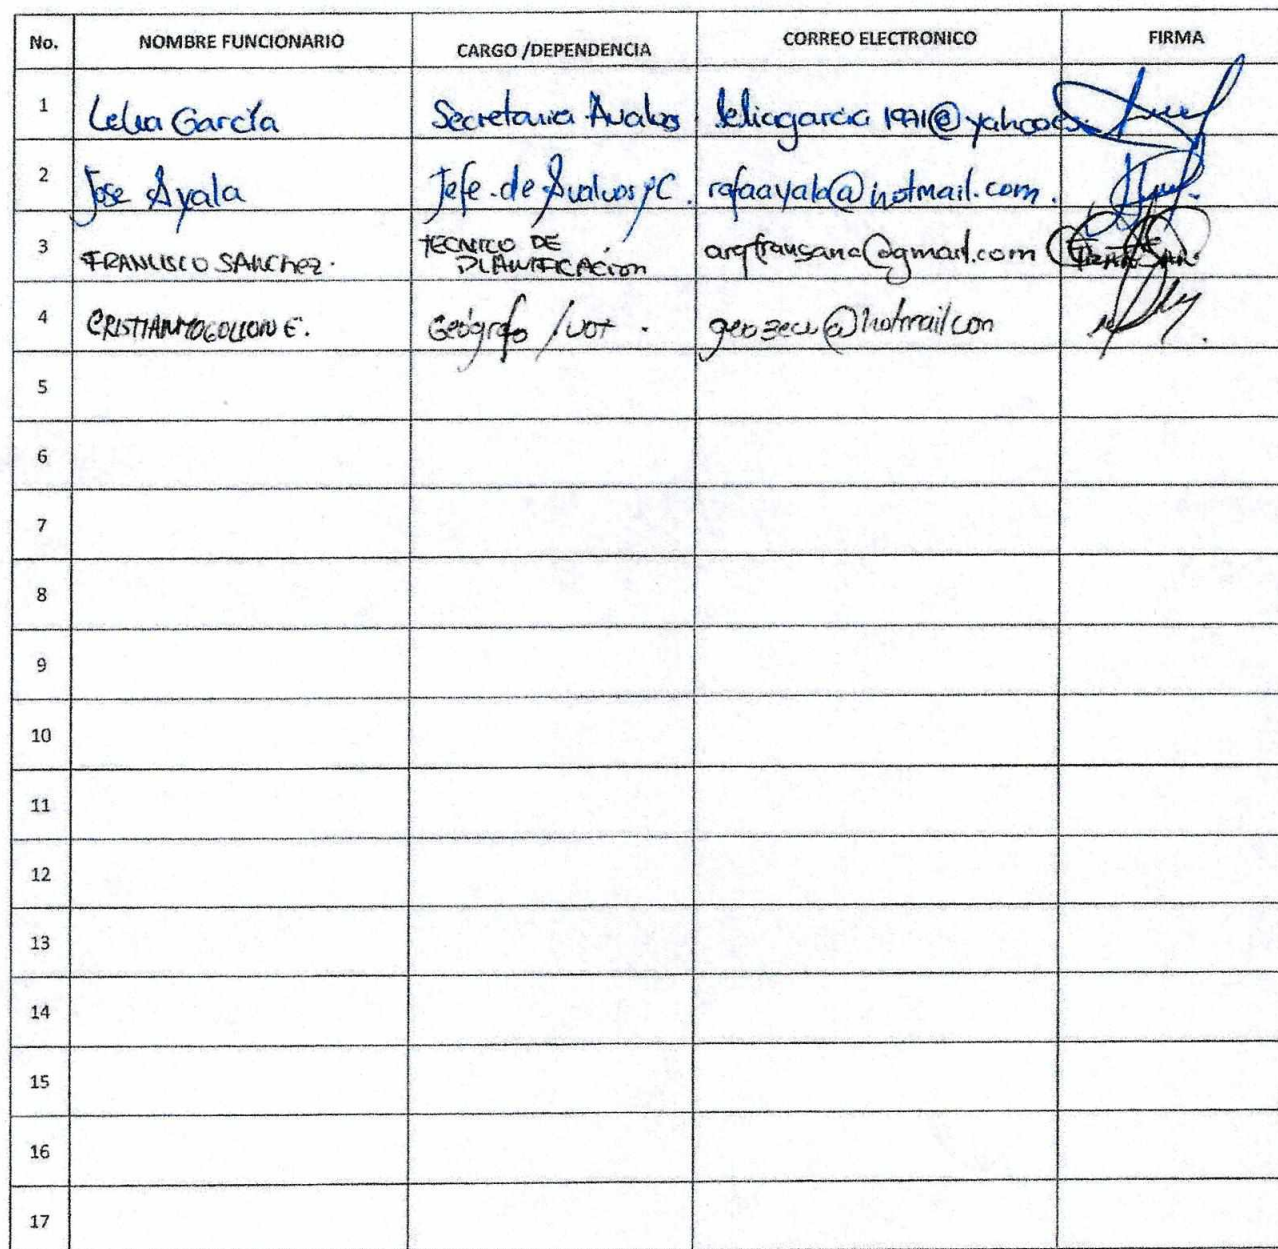 No. NOMBRE FUNCIONARIO CARGO /DEPENDENCIA CORREO ELECTRONICO FIRMA
1 Lelia García Secretaria Avaluos leliagarcia1971@yahoo.es
2 Jose Ayala Jefe de Avaluos y C. rafaayala@hotmail.com.
3 FRANCISCO SANCHEZ. TECNICO DE PLANIFICACION arqfransana@gmail.com
4 Geógrafo /UOT.
5
6
7
8
9
10
11
12
13
14
15
16
17